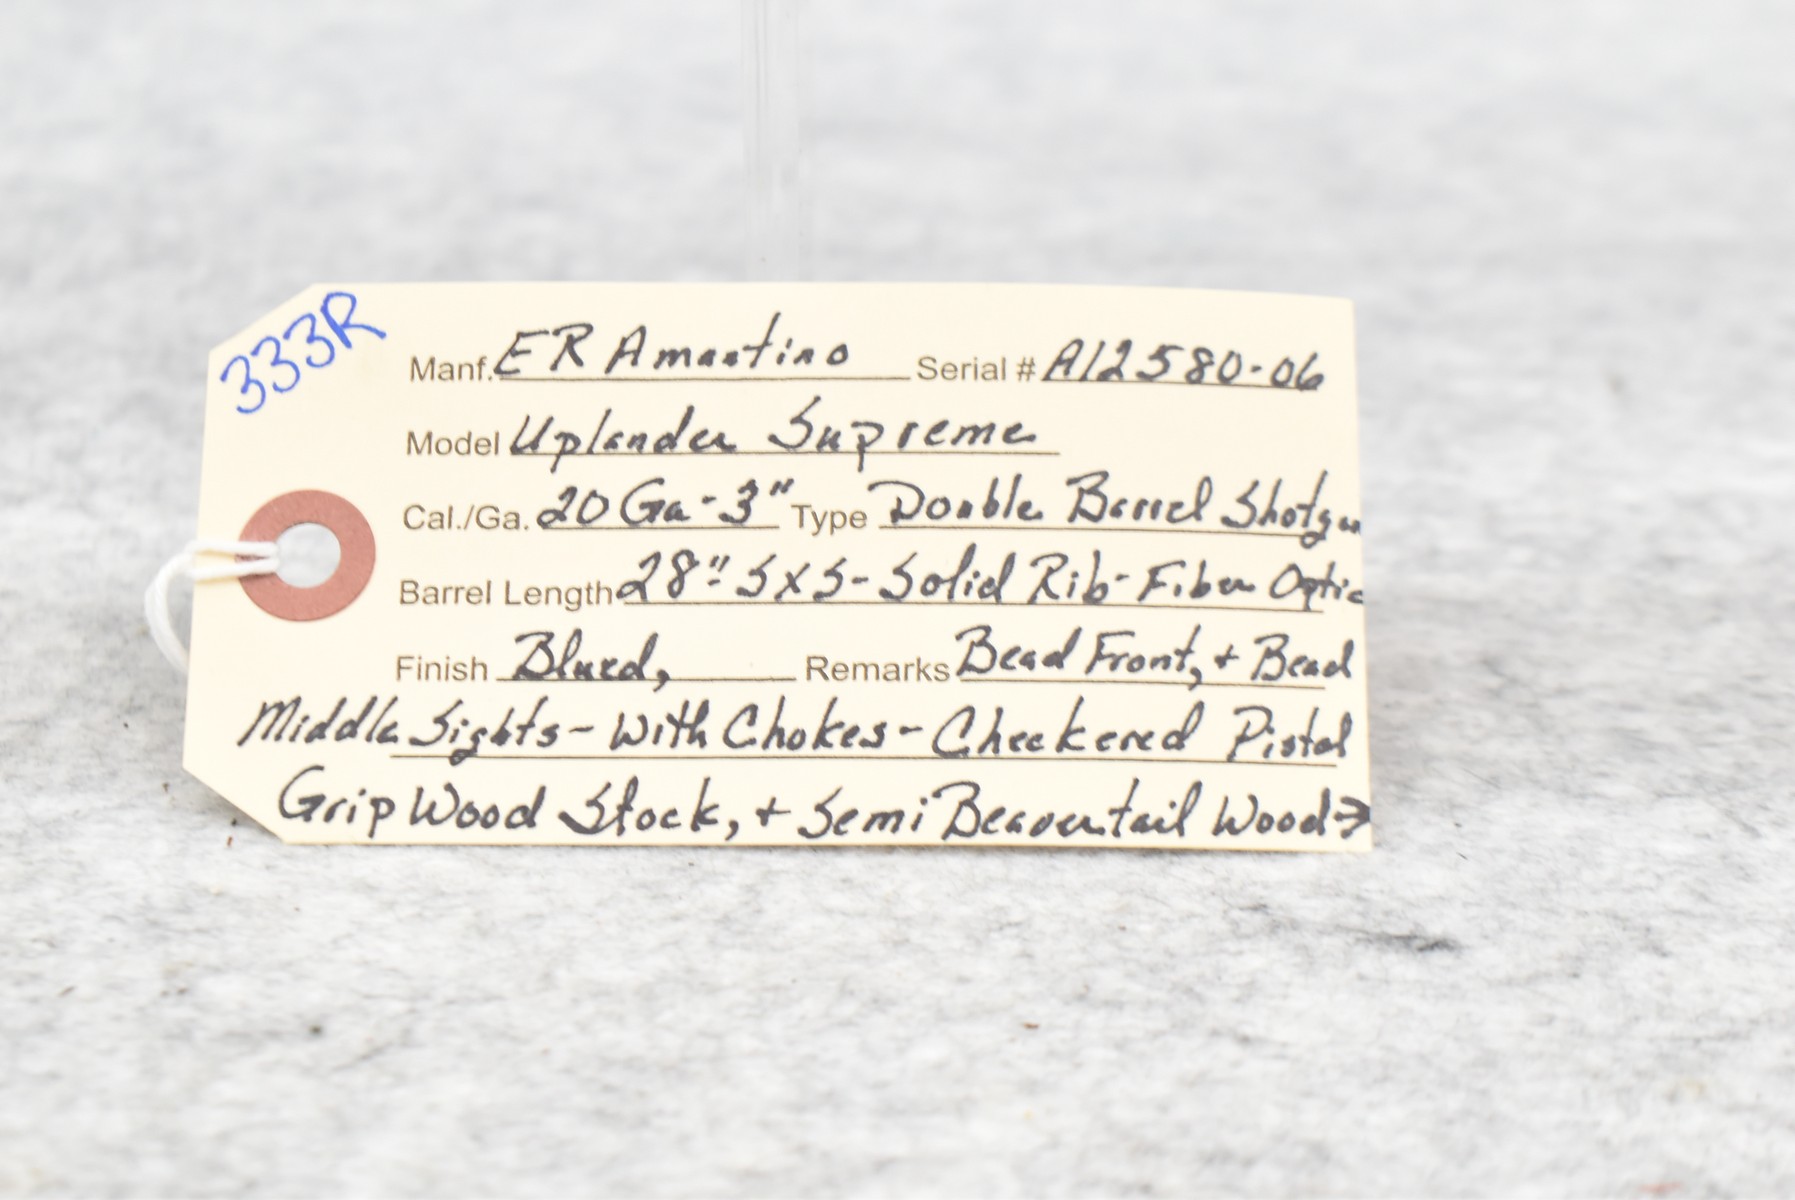 333R
Manf. ER Amantino Serial # A12580-06
Model Uplander Supreme
Cal./Ga. 20 Ga-3" Type Double Barrel Shotgun
Barrel Length 28"-SXS-Solid Rib-Fiber Optic
Finish Blued, Remarks Bead Front, + Bead
Middle Sights-With Chokes-Checkered Pistol
Grip Wood Stock, + Semi Beavertail Wood→